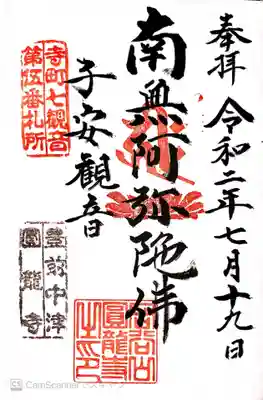 奉拝 令和二年七月十九日
南無阿弥陀佛
子安觀音
寺町七観音
第伍番札所
豊前中津
圓龍寺
圓龍寺
之印
CamScannerでスキャン